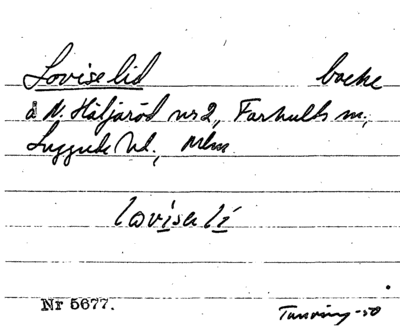 Loviselid backe
å N. Häljaröd nr 2, Farhults sn,
Luggude hd, Mlm
lovisalí
Nr 5677.